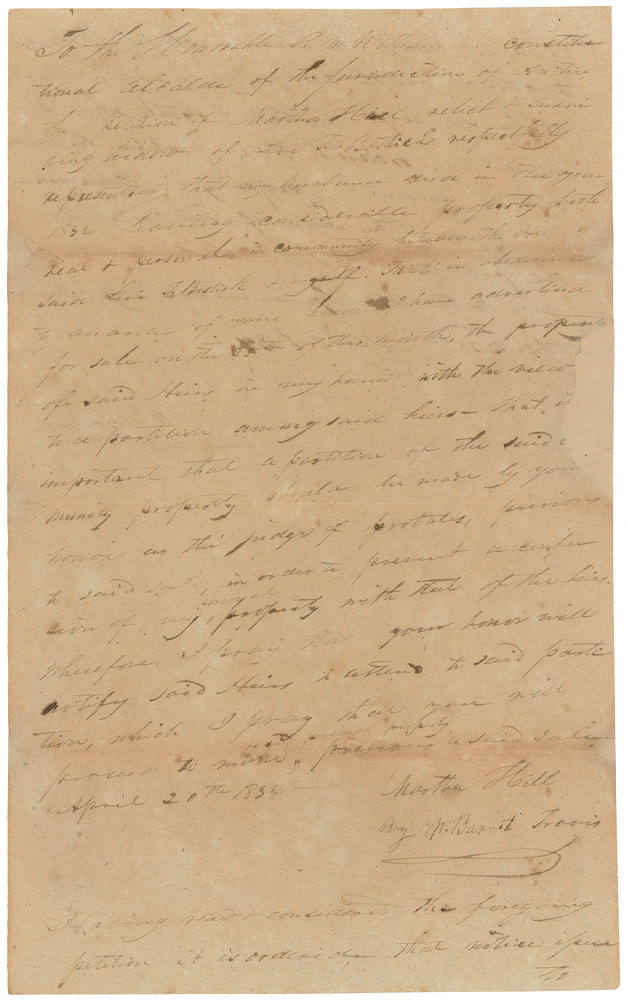 To the Honorable R. M. Williamson constitu
tional Alcalde of the Jurisdiction of Austin
the petition of Martha Hill relict & survi
ving widow of Levi T. Bostick respectfully
represents— That my husband died in the year
1832 having considerable property both
real & personal in community between the heirs of
said Levi T. Bostick & myself. That in obedience
to an order of your honor I have advertised
for sale on the of this month, the property
of said Heirs in my hands with the view
to a partition among said heirs— that is
important that a partition of the said
munity property should be made by your
honor as the judge of probates, previous
to said sale, in order to prevent a confu
sion of my personal property with that of the heirs.
Wherefore I pray that your honor will
notify said Heirs to attend to said parti
tion, which I pray that you will
proceed to make, of said personal property previous to said sale
April 20th 1834—
Martha Hill
By W. Barret Travis
Having read & considered the foregoing
petition it is ordered that notice issue
to